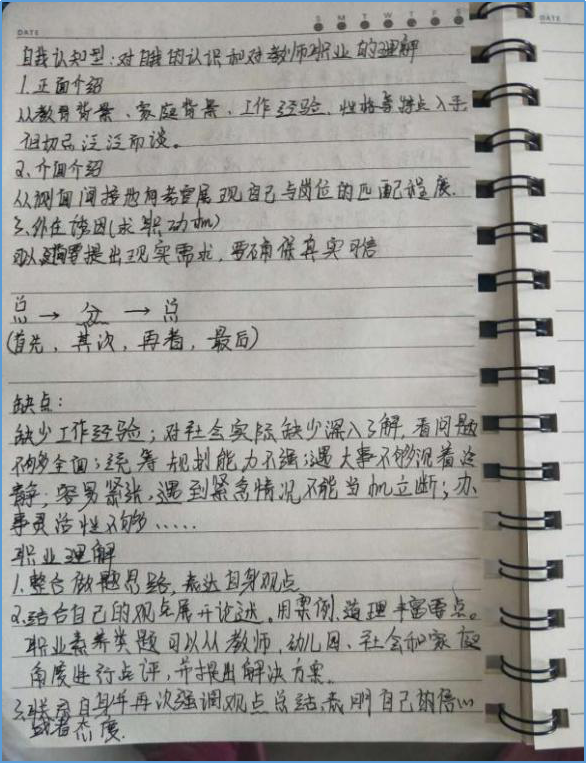 DATE
S M T W T F S
DATE
自我认知型:对自我的认识和对教师职业的理解
1.正面介绍
从教育背景、家庭背景、工作经验、性格等特点入手,
但切忌泛泛而谈。
2.介面介绍
从侧面间接地向考官展现自己与岗位的匹配程度.
3.外在诱因(求职动机)
可以适当提出现实需求,要确保真实可信
总 → 分 → 总
(首先,其次,再者,最后)
缺点:
缺少工作经验;对社会实际缺少深入了解,看问题
不够全面;统筹规划能力不强;遇大事不够沉着冷
静;容易紧张,遇到紧急情况不能当机立断;办
事灵活性不够......
职业理解
1.整合做题思路,表达自身观点
2.结合自己的观点展开论述。用案例、道理丰富要点。
职业素养类题可以从教师、幼儿园、社会和家庭
角度进行点评,并提出解决方案。
3.联系自身再次强调观点总结,表明自己的信心
或者态度.